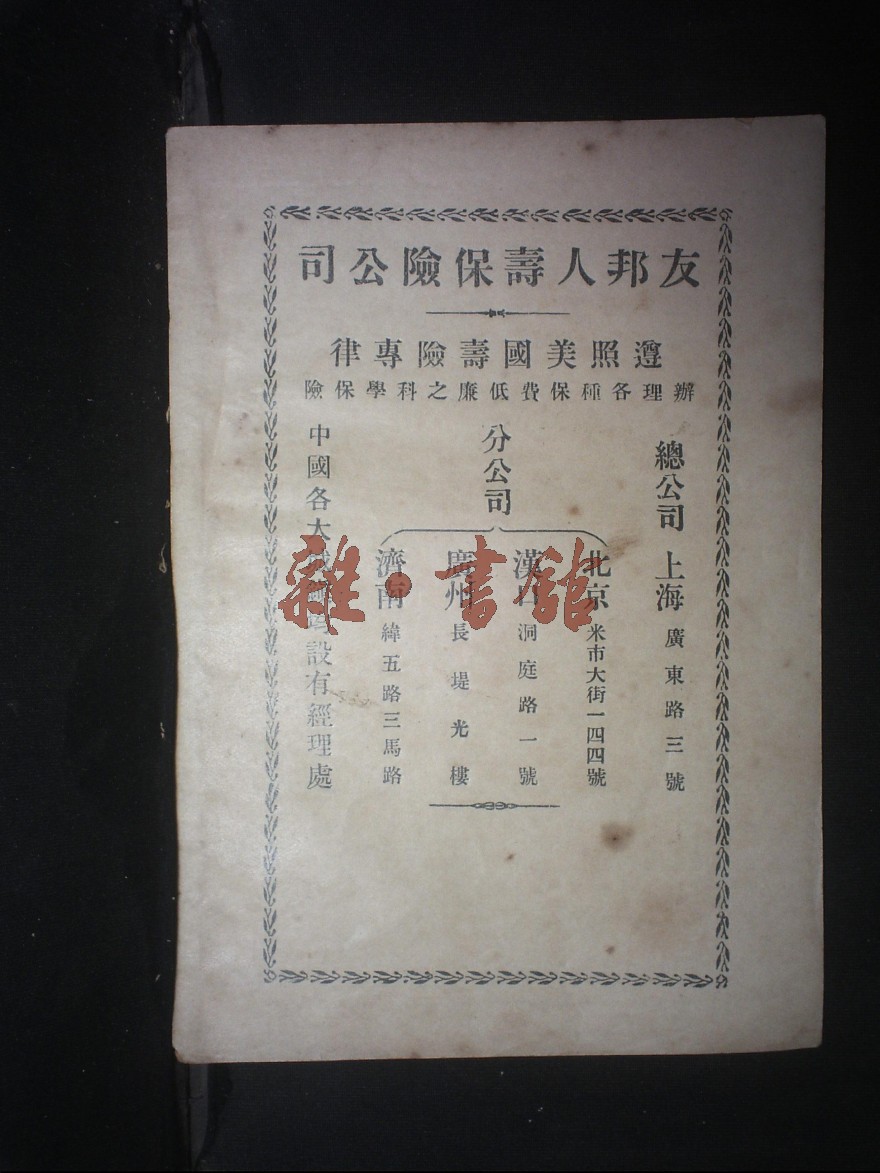 友邦人壽保險公司
遵照美國壽險專律
辦理各種保費低廉之科學保險
總公司 上海 廣東路三號
分公司
北京 米市大街一四四號
漢口 洞庭路一號
廣州 長堤光樓
濟南 緯五路三馬路
中國各大城鎮均設有經理處
雜·書館